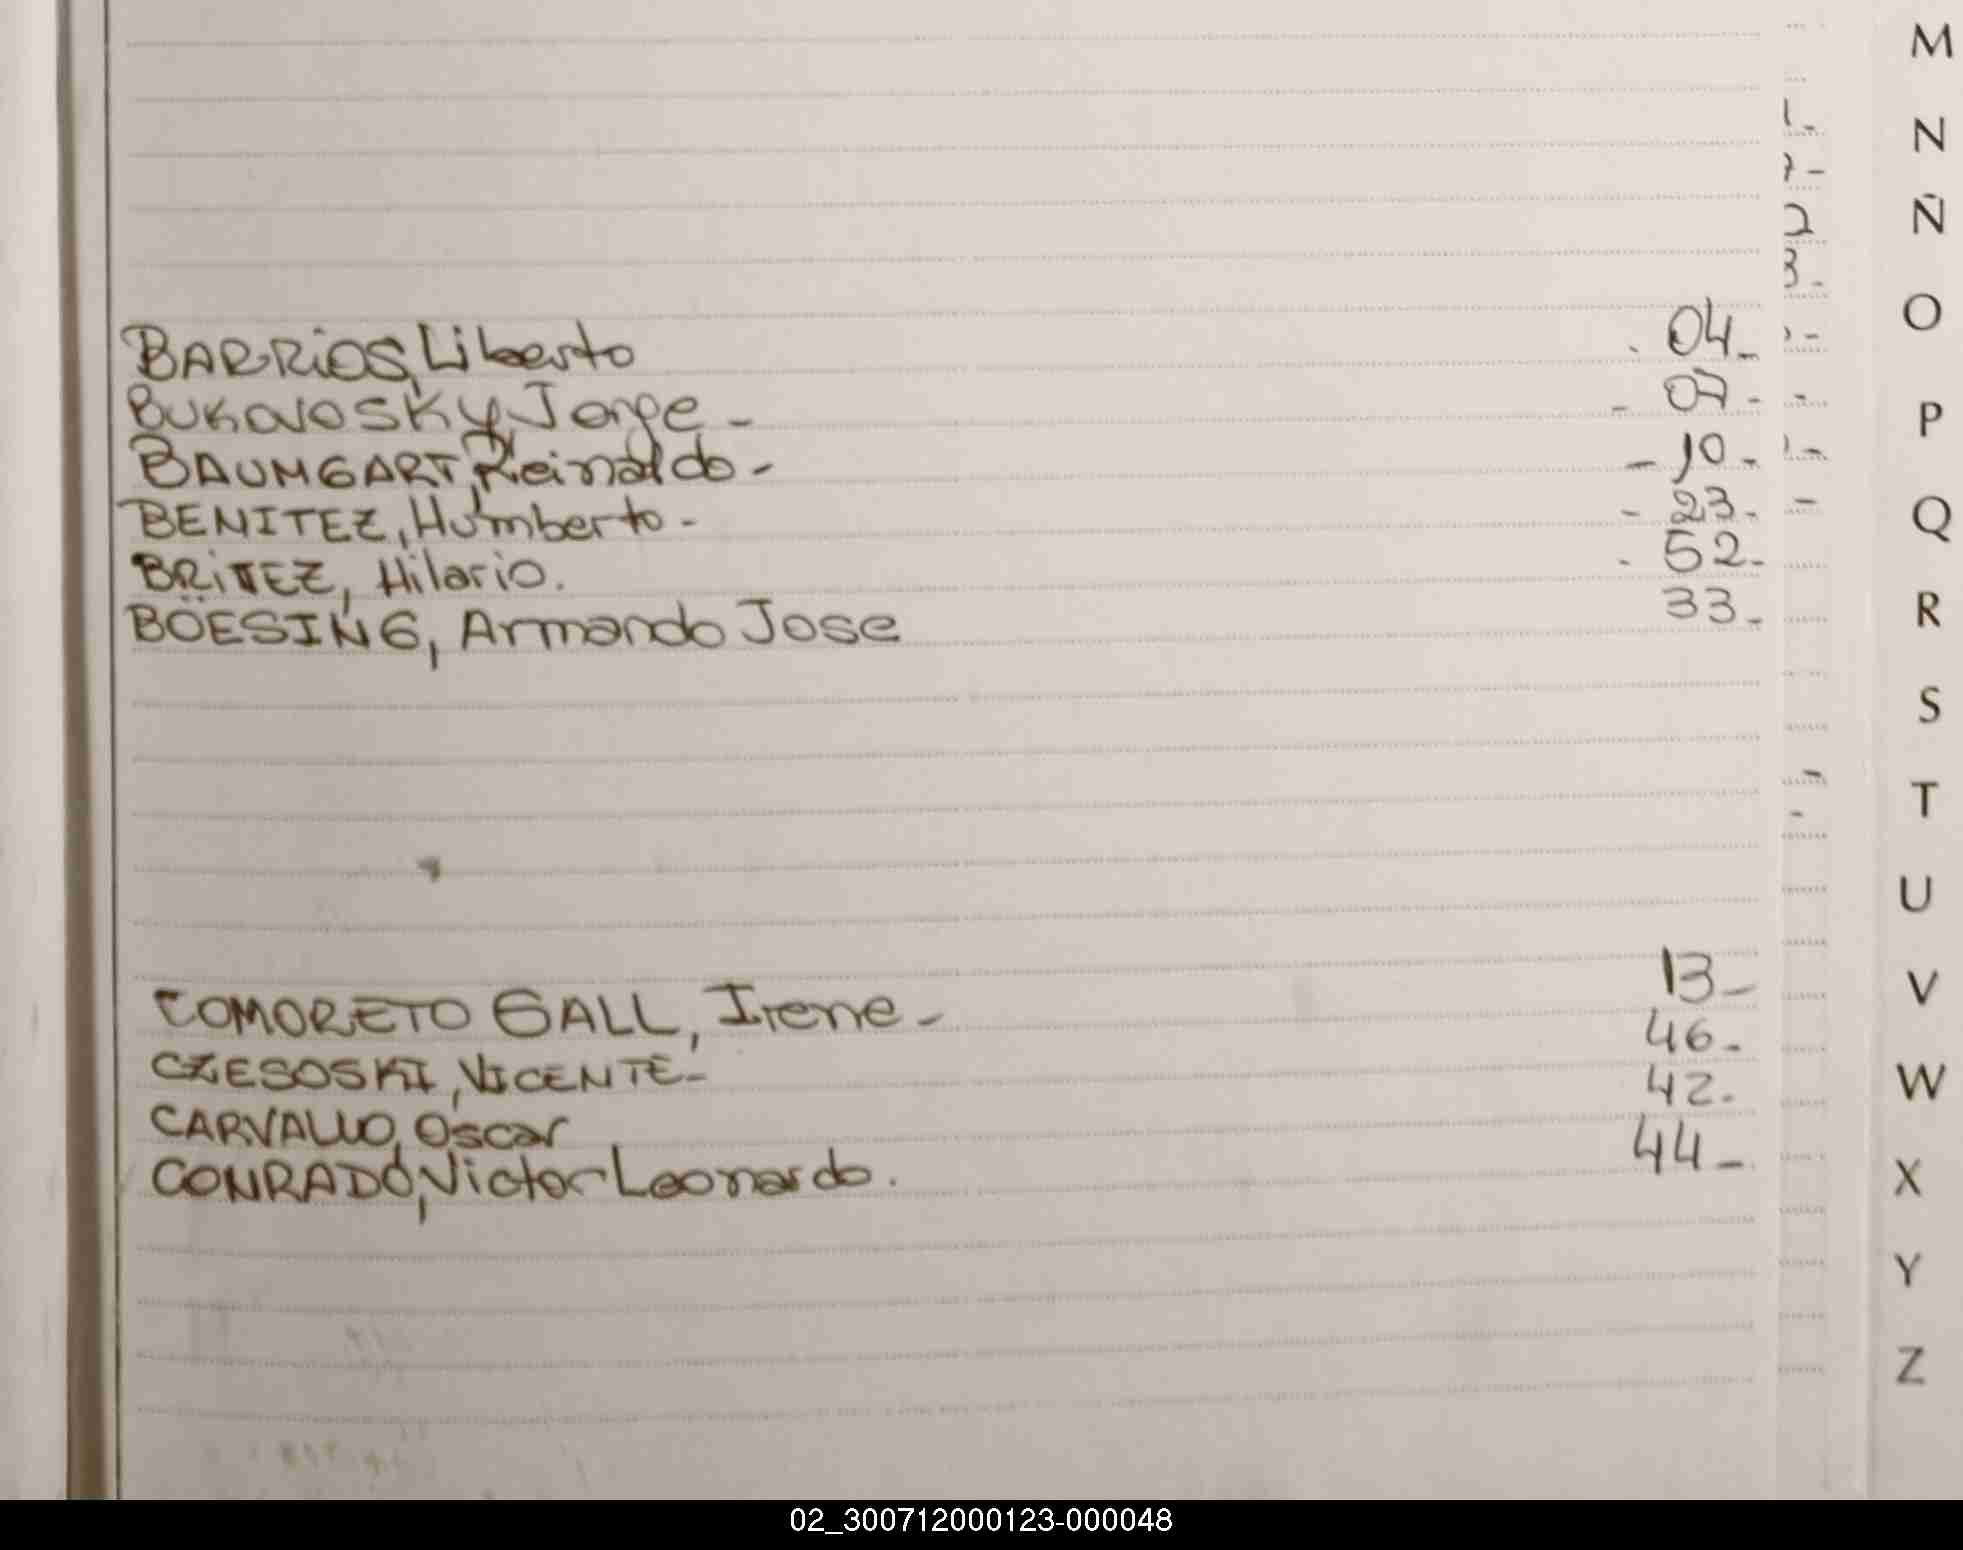 BARRIOS, Liberto . 04-
BUKOVOSKY, Jorge - - 07-
BAUMGART, Reinaldo - - 10-
BENITEZ, Humberto - - 23-
BRITEZ, Hilario. . 52-
BÖESING, Armando Jose 33-
COMORETO GALL, Irene - 13-
CZESOSKI, VICENTE - 46-
CARVALLO, Oscar 42-
CONRADO, Victor Leonardo. 44-
M
N
Ñ
O
P
Q
R
S
T
U
V
W
X
Y
Z
02_300712000123-000048